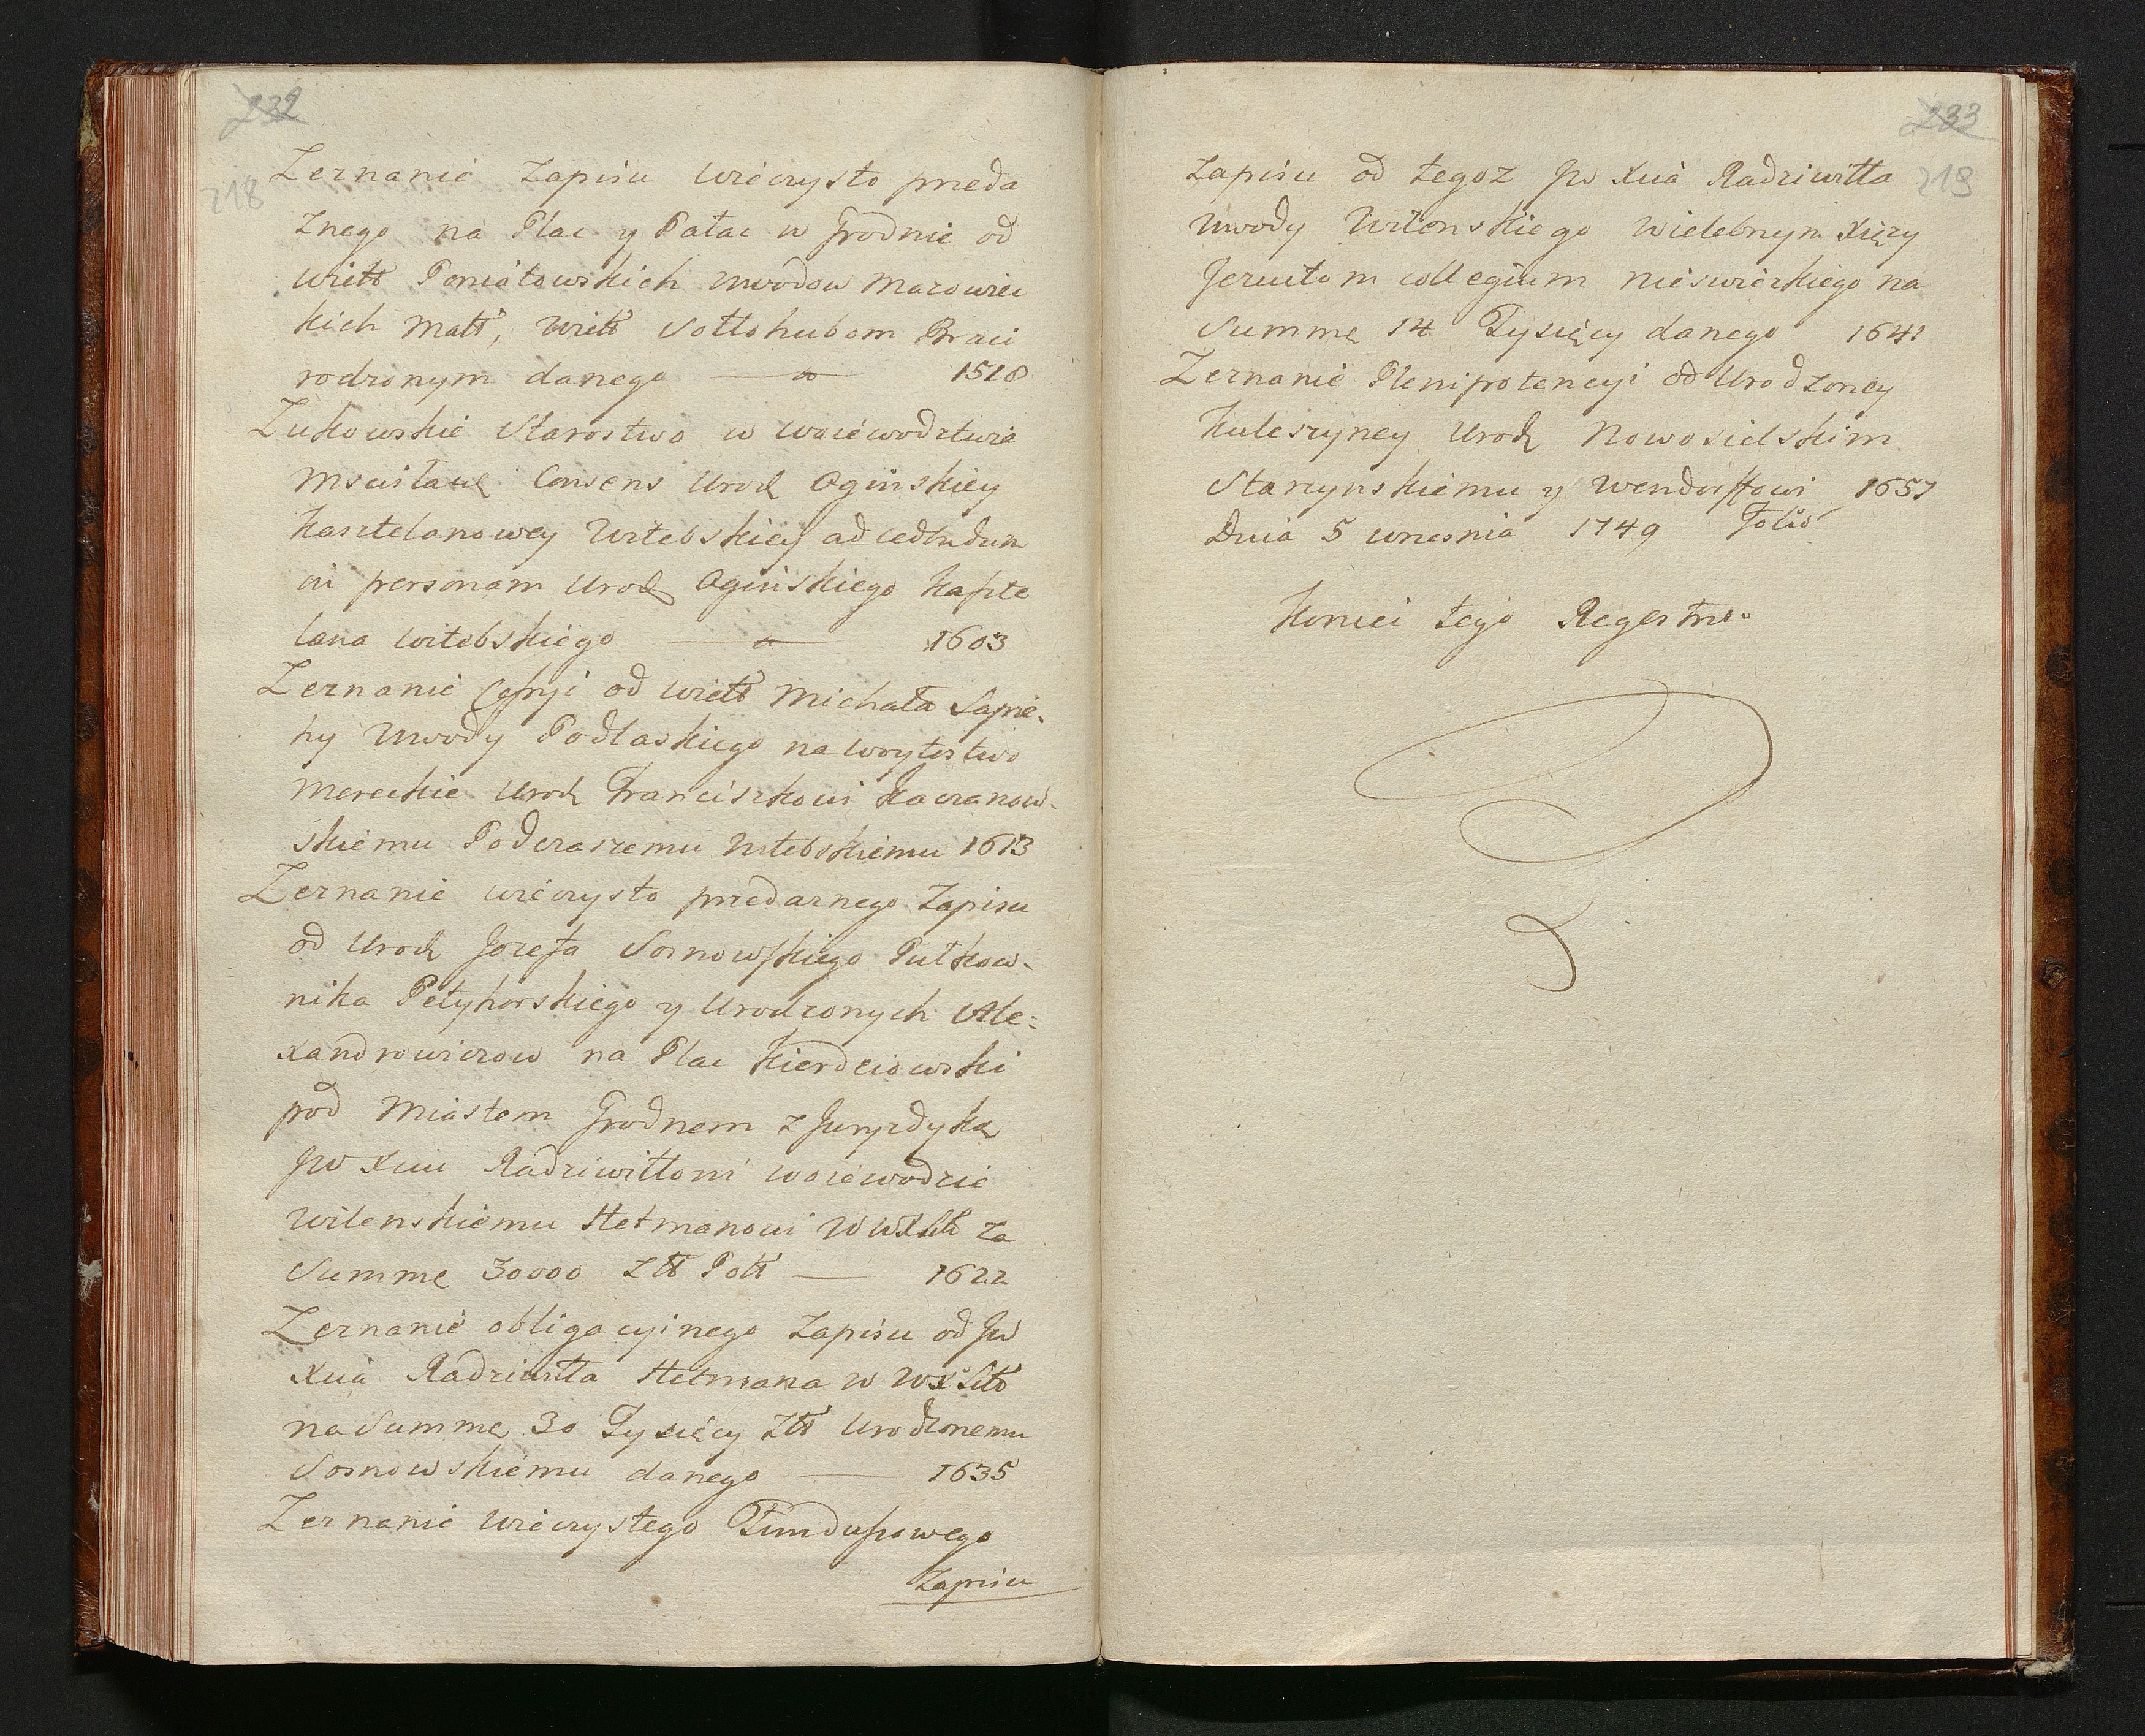 232
218
Zeznanie Zapisu wieczysto przeda
znego na Plac y Pałac w Grodnie od
wiełł Poniatowskich Wwodow Mazowiec
kich Małł, wiełł Sołłohubom Braci
rodzonym danego — 1518
Zukowskie Starostwo w woiewodztwie
Mscisławł Consens Urodz Oginskiey
kasztelanowey Witebskiey ad cedendum
in personam Urodz Oginskiego kaszte
lana witebskiego — 1603
Zeznanie Cessyi od wiełł Michała Sapie-
hy Wwody Podlaskiego na woytostwo
Mereckie Urodz Franciszkowi Kaczanow-
skiemu Podczaszemu witebskiemu 1613
Zeznanie wieczysto przedaznego Zapisu
od Urodz Jozefa Sosnowskiego Pułkow-
nika Petyhorskiego y Urodzonych Ale:
xandrowiczow na Plac Kierdeiowski
pod Miastem Grodnem z Juryzdyką
Jw Xciu Radziwiłłowi woiewodzie
wilenskiemu Hetmanowi W WXLitt za
Summę 30000 Złł Połł — 1622
Zeznanie obligacyinego Zapisu od Jw
Xcia Radziwiłła Hetmana W WXLitt
na Summę 30 Tysięcy Złł Urodzonemu
Sosnowskiemu danego — 1635
Zeznanie wieczystego Funduszowego
Zapisu
233
219
Zapisu od tegoz Jw Xcia Radziwiłła
Wwody Wilenskiego Wielebnym Xięzy
Jezuitom collegium nieswizkiego na
Summę 14 Tysięcy danego 1641
Zeznanie Plenipotencyi od Urodzoney
Kuleszyney Urodz Nowosielskim
Starzynskiemu y Wendorffowi 1657
Dnia 5 wrzesnia 1749 Folio
Koniec tego Regestru.